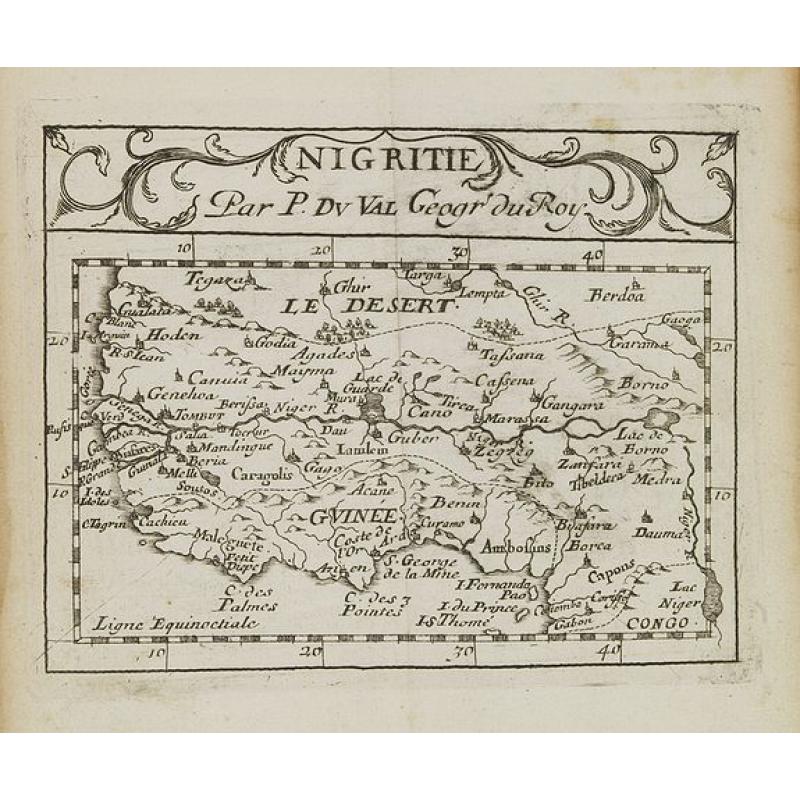 NIGRITIE
Par P. DV VAL Geogr. du Roy.
10 20 30 40
Tegaza Ghir Targa Lempta Ghir R. Berdoa
LE DESERT.
Gualata
C. Blanc
Gaoga
Hoden
20 Godia Garama 20
R. S. Jean Agades Tassana
Mayma
Canuia Lac de Guarde Cassena Borno
Genehoa Tirca Gangara
Senega R. Berissa Niger R. Cano
C. Verd TOMBUT Marassa
Gambea R. Tocrur Dau Guber Niger R. Lac de Borno
Mandingue Lamlem Zegzeg
Beria Zanfara
Melli Caragolis Gago Tibeldera
Sousos Bito Medra
10 10
I. des Idoles Acane Benin
C. Tagrin Cachieu GVINEE. Curamo Biafara Dauma Niger R.
Maleguete Coste de l'Or Ardre Ambosins Borea
Petit Diepe Capons
S. George de la Mine
C. des Palmes C. des 3 Pointes I. Fernando Pao Lac Niger
I. du Prince
I. S. Thomé Gabon CONGO.
Ligne Equinoctiale
10 20 30 40